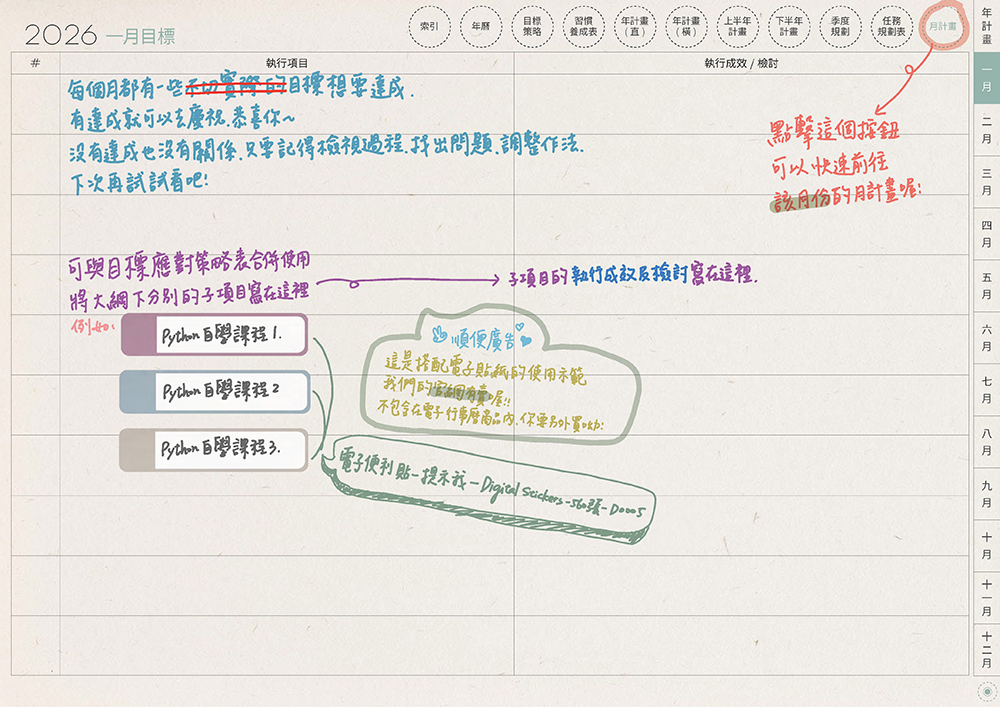 2026 一月目標
索引
年曆
目標
策略
習慣
養成表
年計畫
（直）
年計畫
（橫）
上半年
計畫
下半年
計畫
季度
規劃
任務
規劃表
月計畫
年計畫
一月
二月
三月
四月
五月
六月
七月
八月
九月
十月
十一月
十二月
#
執行項目
執行成效 / 檢討
每個月都有一些不切實際的目標想要達成.
有達成就可以去慶祝.恭喜你~
沒有達成也沒有關係.只要記得檢視過程.找出問題.調整作法.
下次再試試看吧!
點擊這個按鈕
可以快速前往
該月份的月計畫喔!
可與目標應對策略表合併使用
將大綱下分別的子項目寫在這裡
子項目的執行成效及檢討寫在這裡.
例如:
Python自學課程1.
Python自學課程2
Python自學課程3.
順便廣告
這是搭配電子貼紙的使用示範
我們的官網有賣喔!!
不包含在電子行事曆商品內.你要另外買呦!
電子便利貼-提示我-Digital Stickers-560張-D0005